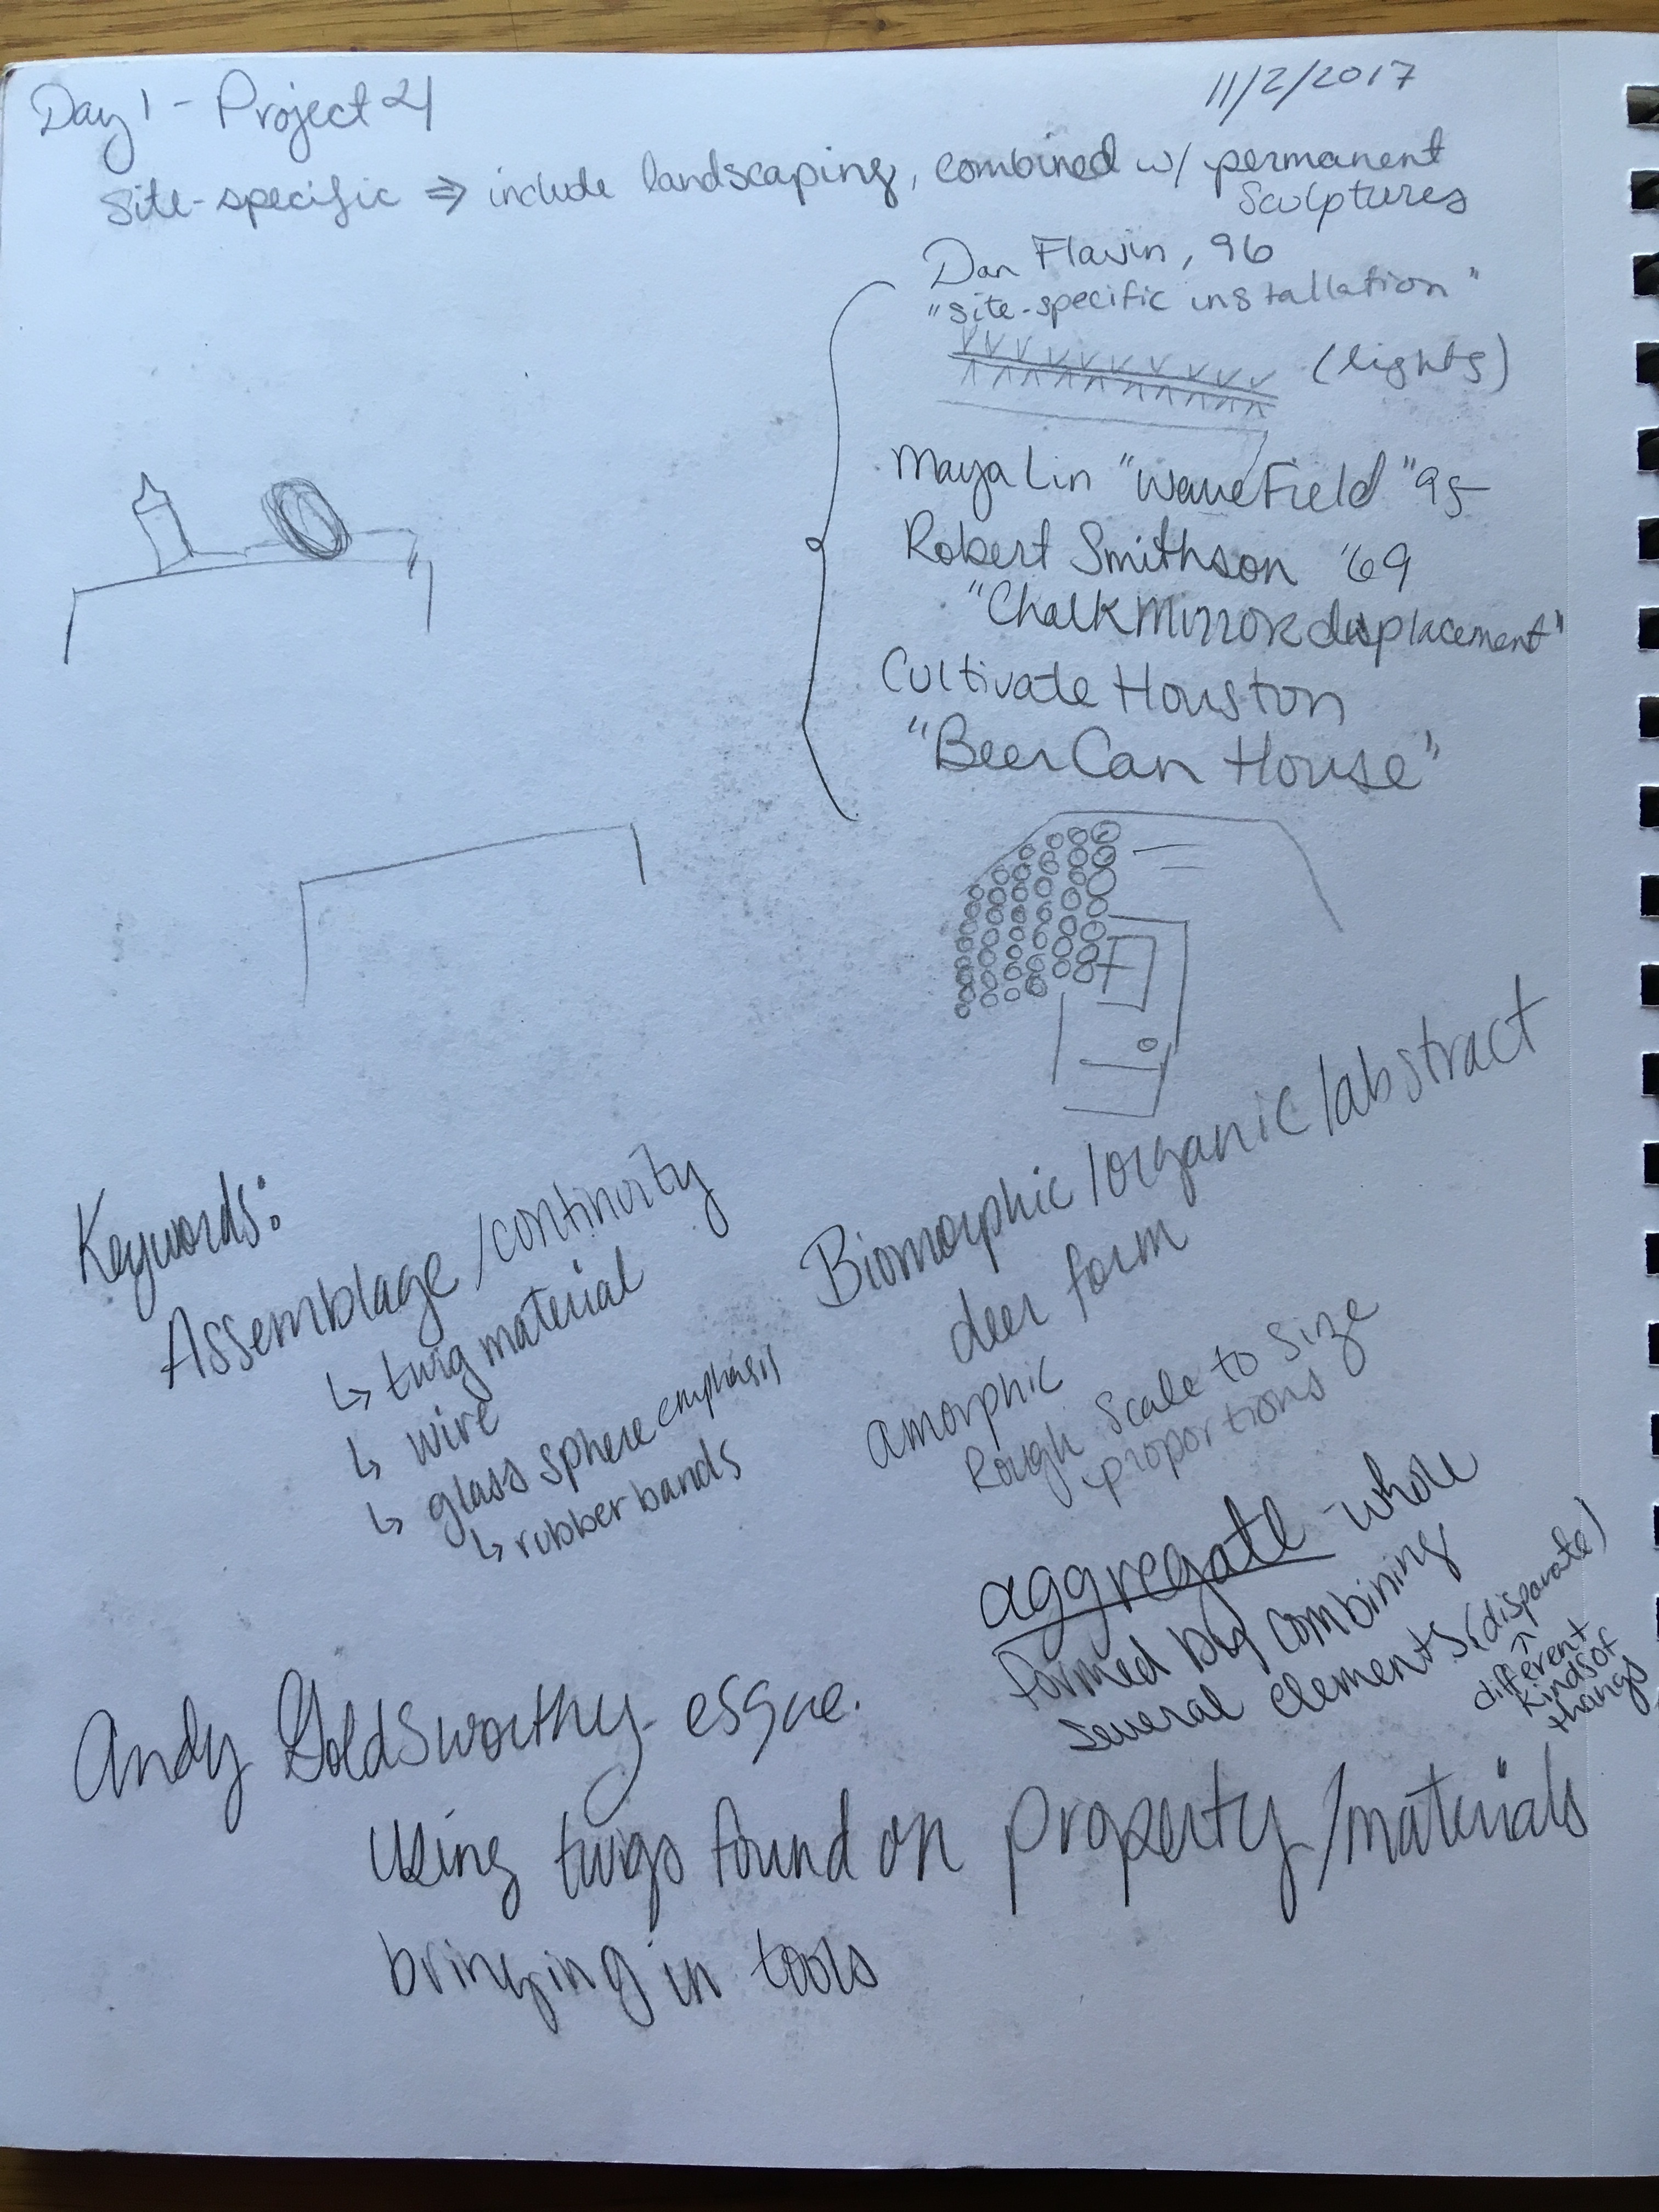 Day 1 - Project 4
11/2/2017
Site-specific ⇒ include landscaping, combined w/ permanent
sculptures
Dan Flavin, 96
"site-specific installation"
(lights)
Maya Lin "Wave Field" 95
Robert Smithson '69
"Chalk Mirror displacement"
Cultivate Houston
"Beer Can House"
Keywords:
Assemblage/continuity
↳ twig material
↳ wire
↳ glass sphere emphasis
↳ rubber bands
Biomorphic/organic/abstract
deer form
amorphic
Rough Scale to Size
proportions
aggregate - whole
formed by combining
several elements (disparate)
↑
different
kinds of
things
Andy Goldsworthy- esque.
Using twigs found on property/materials
bringing in tools